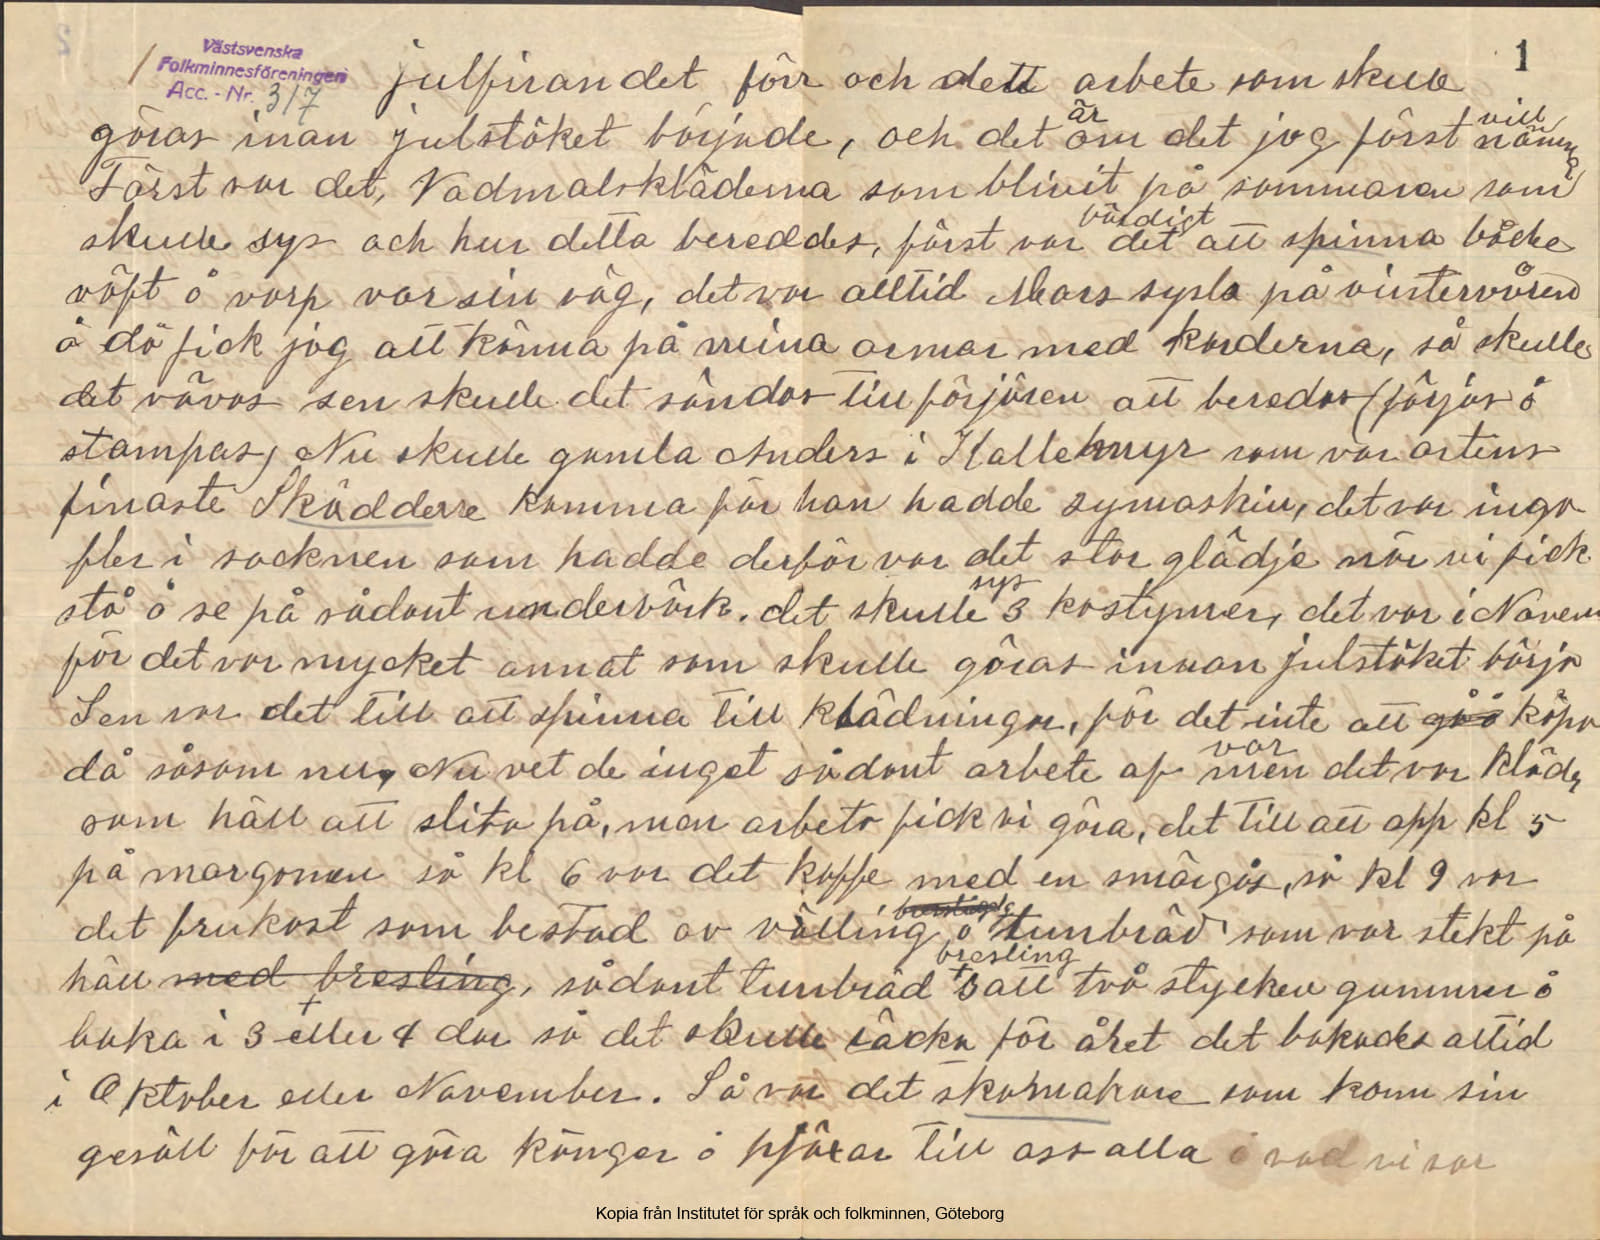 1
Västsvenska
Folkminnesföreningen
Acc.-Nr. 317
julfirandet förr och dett arbete som skulle
göras inan julstöket börjnde, och det är om det jag först vill nämna
Först var det, Vadmalskläderna som blivit på sommaren som
skulle sys och hur detta bereddes, först var det att spinna både
väft å varp var sin väg, det var alltid Mors sysla på vintervåren
å då fick jag att känna på mina armar med karderna, så skulle
det vävas sen skulle det sändas till färjåren att beredas (färjas å
stampas) Nu skulle gamla Anders i Kallehmyr som var ortens
finaste Skädderre komma för han hadde symaskin, det var inga
fler i socknen som hadde derför var det stor glädje när vi fick
stå å se på sådant undervärk. det skulle sys 3 kostymer, det var i Novem
för det var mycket annat som skulle göras innan julstöket börja
Sen var det till att spinna till klädningar, för det inte att köpa
då såsom nu, Nu vet de inget sådant arbete af var men det var kläder
som häll att slita på, men arbeta fick vi göra, det till att opp kl 5
på morgonen så kl 6 var det kaffe med en smörgås, så kl 9 var
det frukost som bestod av välling å tunbräd som var stekt på
häll med bresling, sådant tunbräd bresling å att två stycken gummer å
baka i 3 eller 4 dar så det skulle räcka för året det bakades alltid
i Oktober eller November. Så var det skomakare som kom sin
gesäll för att göra kängor å hjärar till oss alla å vad vi var
Kopia från Institutet för språk och folkminnen, Göteborg